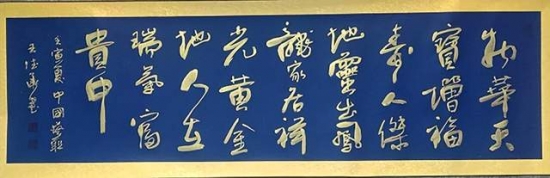 物華天
寶增福
壽人傑
地靈出鳳
龍家居祥
光黃金
地人在
瑞氣富
貴中
壬寅夏中國